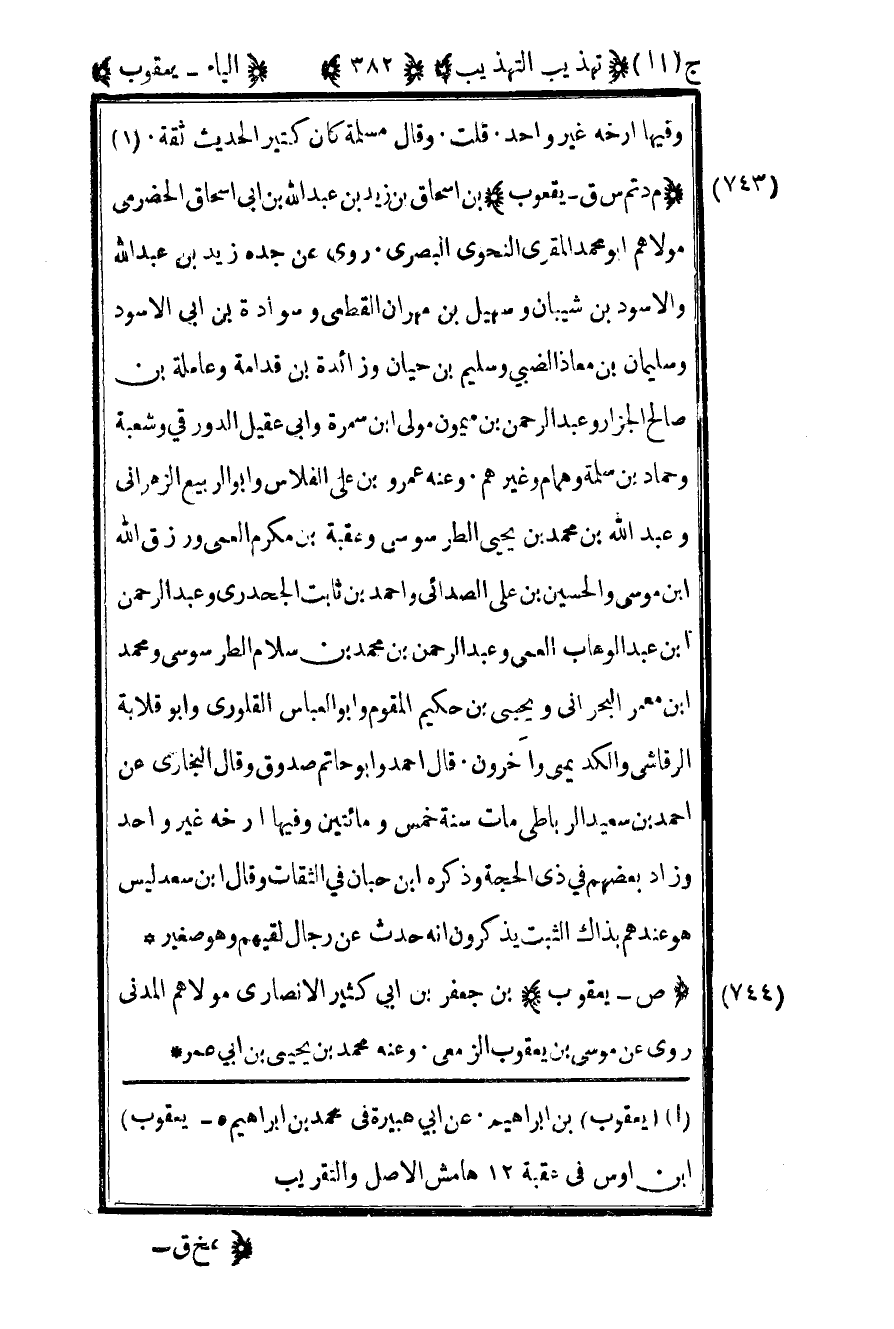 ج(١١) ﴿ تهذيب التهذيب ﴾ ﴿ ٣٨٢ ﴾ ﴿ الياء ـ يعقوب ﴾
وفيها ارخه غير واحد٠ قلت٠ وقال مسلمة كان كثير الحديث ثقة٠ (١)
(٧٤٣) ﴿ م د تم س ق ـ يعقوب ﴾ بن اسحاق بن زيد بن عبدالله بن ابى اسحاق الحضرمى
مولاهم ابو محمد المقرى النحوى البصرى٠ روى عن جده زيد بن عبدالله
والاسود بن شيبان و سهيل بن مهران القطعى و سوادة بن ابي الاسود
وسليمان بن معاذ الضبي وسليم بن حيان وزائدة بن قدامة وعاملة بن
صالح الجزار وعبدالرحمن بن ميمون مولى ابن سمرة وابى عقيل الدورقي وشعبة
وحماد بن سلمة وهمام وغيرهم٠ وعنه عمرو بن على الفلاس وابوالربيع الزهرانى
وعبد الله بن محمد بن يحيى الطرسوسى وعقبة بن مكرم العمى ورزق الله
ابن موسى والحسين بن على الصدائى واحمد بن ثابت الجحدرى وعبدالرحمن
ابن عبدالوهاب العمى وعبدالرحمن بن محمد بن سلام الطرسوسى ومحمد
ابن معمر البحرانى و يحيى بن حكيم المقوم وابوالعباس القلورى وابو قلابة
الرقاشى والكديمى وآخرون٠ قال احمد وابو حاتم صدوق وقال البخارى عن
احمد بن سعيد الرباطى مات سنة خمس و مائتين وفيها ارخه غير واحد
وزاد بعضهم في ذى الحجة وذكره ابن حبان في الثقات وقال ابن سعد ليس
هو عندهم بذاك الثبت يذكرون انه حدث عن رجال لقيهم وهو صغير *
(٧٤٤) ﴿ ص ـ يعقوب ﴾ بن جعفر بن ابي كثير الانصارى مولاهم المدنى
روى عن موسى بن يعقوب الزمعى٠ وعنه محمد بن يحيى بن ابي عمر*
(١) (يعقوب) بن ابراهيم٠ عن ابي هبيرة فى محمد بن ابراهيم ٥ـ يعقوب)
ابن اوس فى عقبة ١٢ هامش الاصل والتقريب
﴿ بخ ق ـ